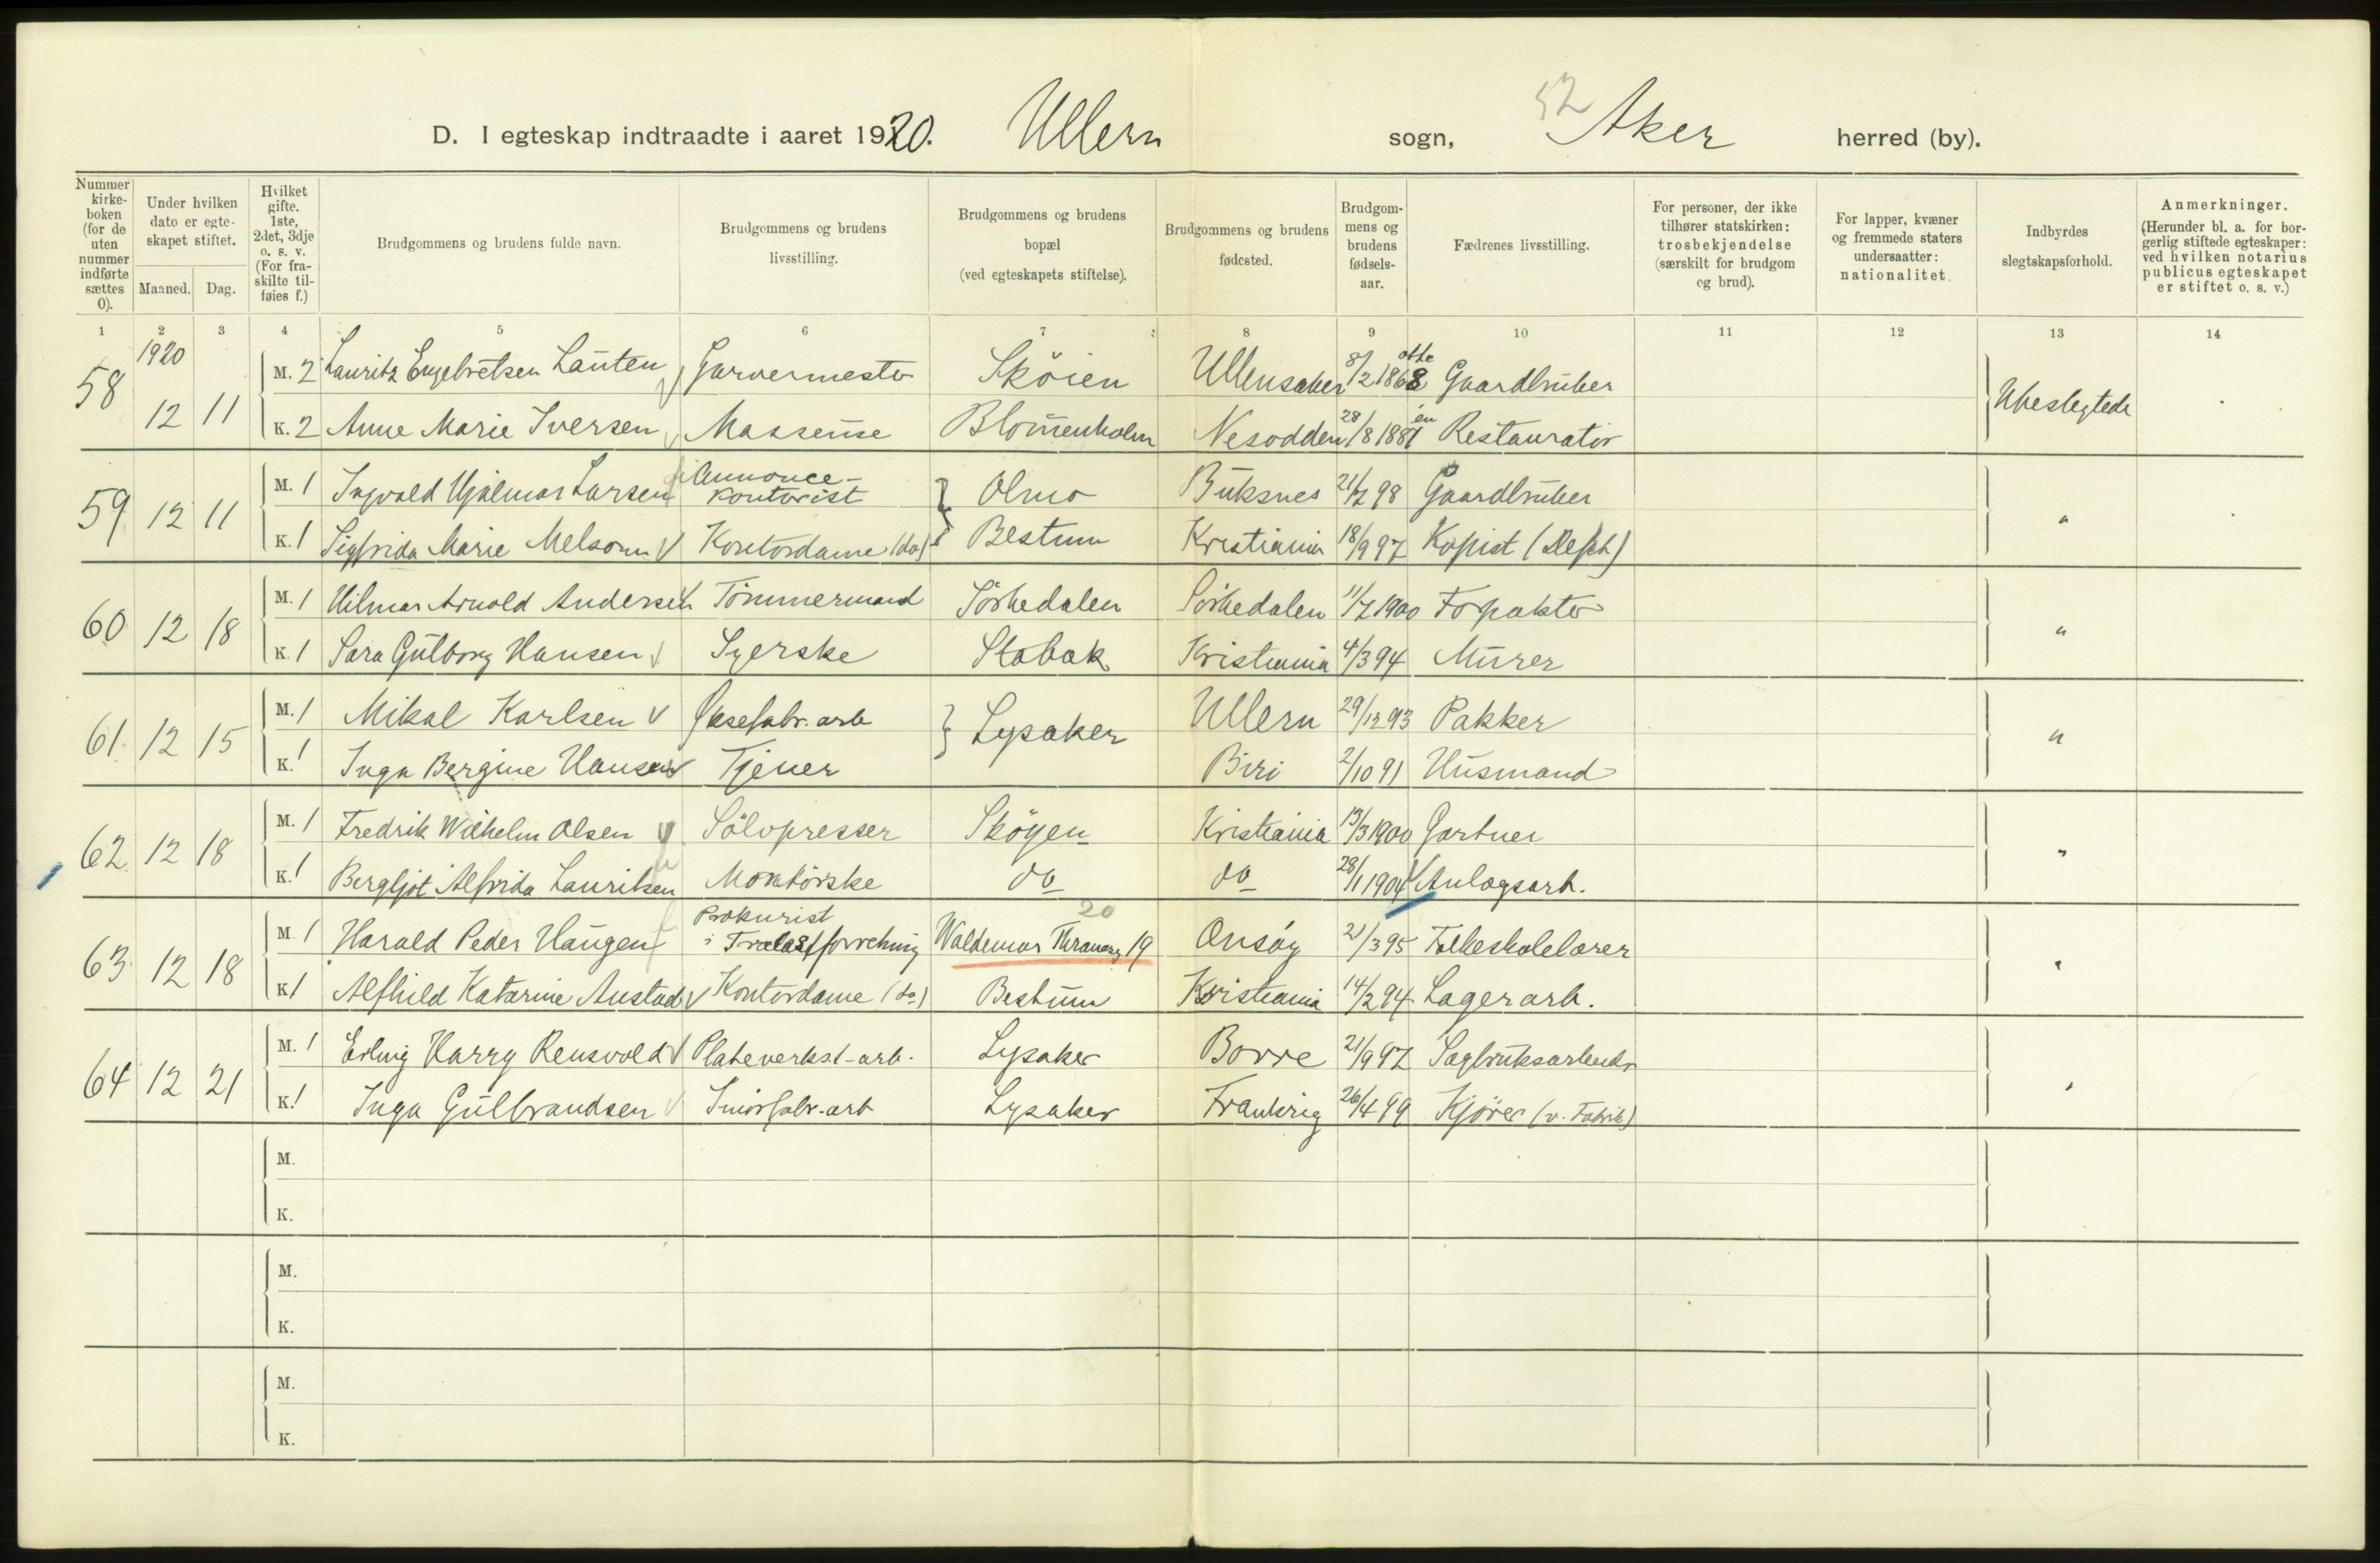 52
D. I egteskap indtraadte i aaret 1920. Ullern sogn, Aker herred (by).
Nummer kirke-boken (for de uten nummer indførte sættes 0).
Under hvilken dato er egte-skapet stiftet.
Maaned. Dag.
Hvilket gifte. 1ste, 2det, 3dje o. s. v. (For fra-skilte til-føies f.)
Brudgommens og brudens fulde navn.
Brudgommens og brudens livsstilling.
Brudgommens og brudens bopæl (ved egteskapets stiftelse).
Brudgommens og brudens fødested.
Brudgom-mens og brudens fødsels-aar.
Fædrenes livsstilling.
For personer, der ikke tilhører statskirken: trosbekjendelse (særskilt for brudgom og brud).
For lapper, kvæner og fremmede staters undersaatter: nationalitet.
Indbyrdes slegtskapsforhold.
Anmerkninger. (Herunder bl. a. for bor-gerlig stiftede egteskaper: ved hvilken notarius publicus egteskapet er stiftet o. s. v.)
1 2 3 4 5 6 7 8 9 10 11 12 13 14
1920
58 12 11 M. 2 Lauritz Engebretsen Lauten Garvermester Skøien Ullensaker 8/2 1868 otte Gaardbruker Ubeslegtede
K. 2 Anne Marie Iversen Masseuse Blommenholm Nesodden 28/8 1881 en Restauratør
59 12 11 M. 1 Ingvald Hjalmar Larsen Annonce-kontorist Olmo Buksnes 21/7 98 Gaardbruker "
K. 1 Sigfrida Marie Melsom Kontordame (do) Bestum Kristiania 18/9 97 Kopist (Dept)
60 12 18 M. 1 Hilmar Arnold Andersen Tømmermand Sørkedalen Sørkedalen 11/7 1900 Forpakter "
K. 1 Sara Gulborg Hansen Syerske Stabæk Kristiania 4/3 94 Murer
61 12 15 M. 1 Mikal Karlsen Øksefabr. arb Lysaker Ullern 29/12 93 Pakker "
K. 1 Inga Bergine Hansen Tjener Biri 2/10 91 Husmand
62 12 18 M. 1 Fredrik Wilhelm Olsen Sølvpresser Skøyen Kristiania 13/3 1900 Gartner "
K. 1 Bergljot Alfrida Lauritsen Montørske do do 28/1 1904 Anlægsarb.
20
63 12 18 M. 1 Harald Peder Haugen Prokurist i Trælastforretning Waldemar Thranesg 19 Onsøy 21/3 95 Folkeskolelærer "
K. 1 Alfhild Katarine Austad Kontordame (do) Bestum Kristiania 14/2 94 Lagerarb.
64 12 21 M. 1 Erling Harry Rensvold Plateverkst-arb. Lysaker Borre 21/9 97 Sagbruksarbeider "
K. 1 Inga Gulbrandsen Smørfabr.-arb Lysaker 26/4 99 Kjører (v. Fabrik)
M.
K.
M.
K.
M.
K.